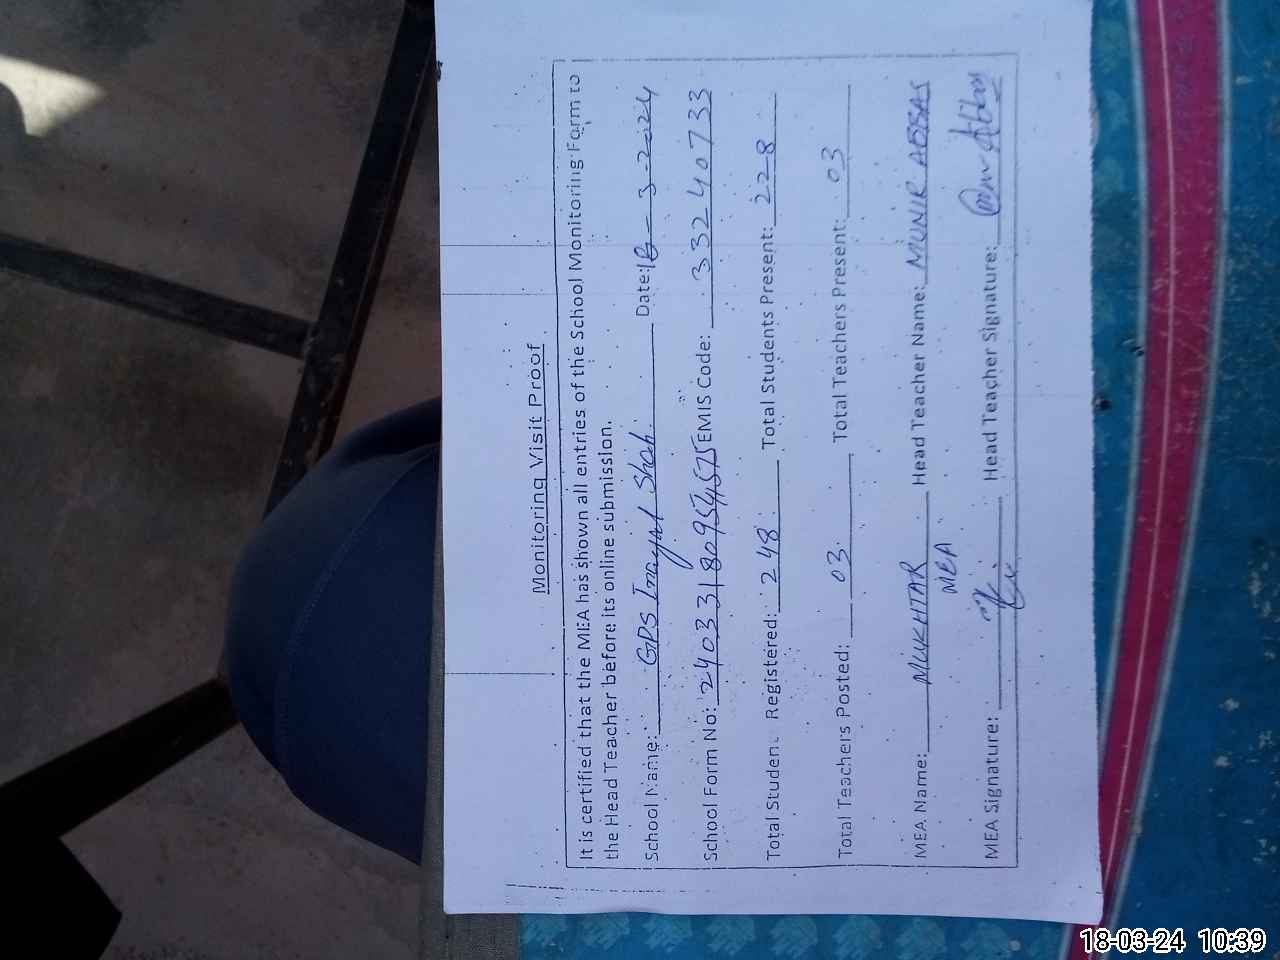 Monitoring Visit Proof
It is certified that the MEA has shown all entries of the School Monitoring Form to
the Head Teacher before its online submission.
School Name: GPS Inayat Shah Date: 18-3-2024
School Form No: EMIS Code: 33240733
Total Student Registered: 248 Total Students Present: 228
Total Teachers Posted: 03 Total Teachers Present: 03
MEA Name: MUKHTAR Head Teacher Name: MUNIR ABBAS
MEA
MEA Signature: Head Teacher Signature: Abbas
18-03-24 10:39